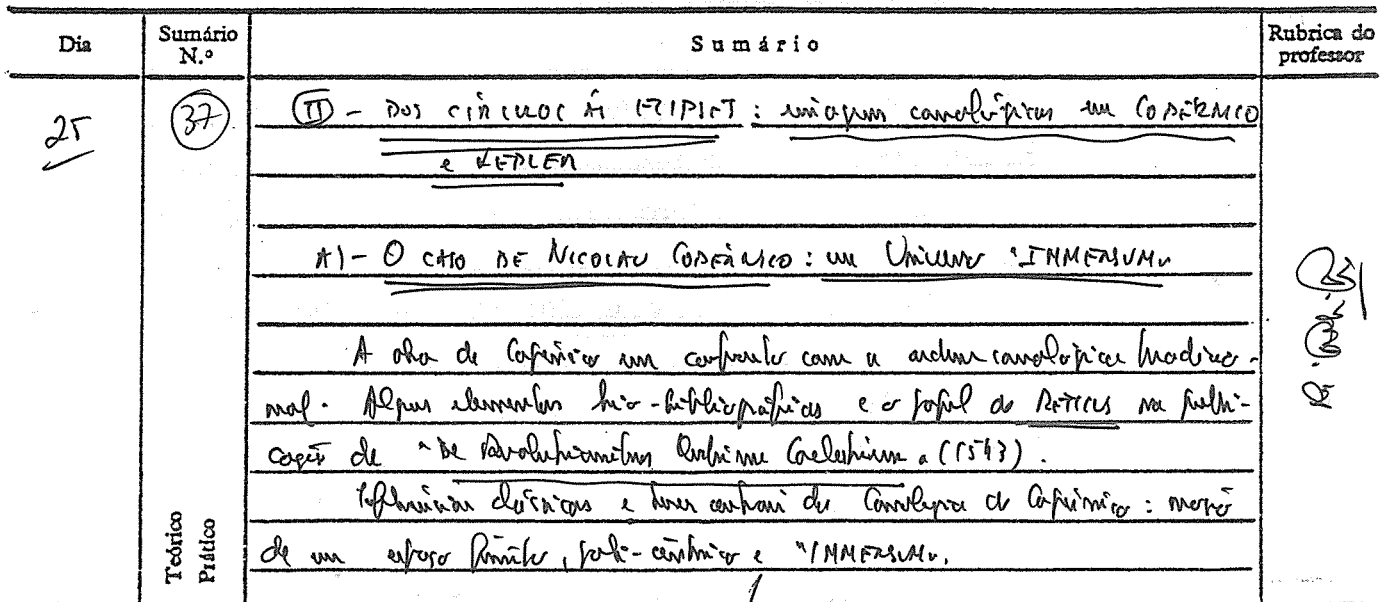 Dia
Sumário N.º
Sumário
Rubrica do professor
25
37
II - DOS CÍRCULOS ÀS ELIPSES : imagens cosmológicas em COPÉRNICO
e KEPLER
A) - O CASO DE NICOLAU COPÉRNICO : um Universo "IMMENSUM"
A obra de Copérnico em confronto com a ordem cosmológica tradicio-
nal. Alguns elementos bio-bibliográficos e o papel de RETICUS na publi-
cação de "De Revolutionibus Orbium Coelestium" (1543).
Influências clássicas e teses centrais da Cosmologia de Copérnico : noção
de um espaço finito, poli-cêntrico e "IMMENSUM".
Teórico
Prático